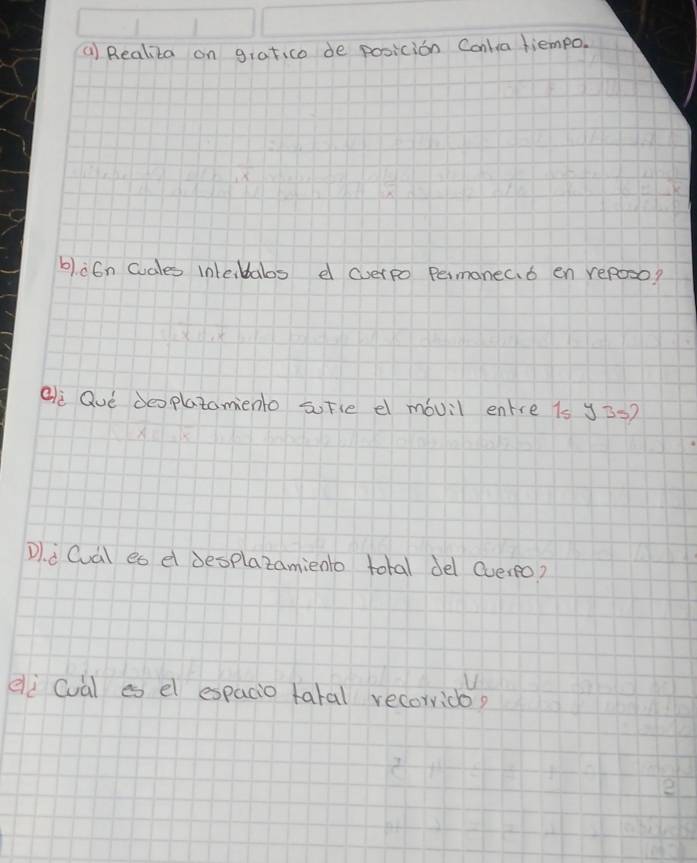 a) Realiza un grafico de posición contra tiempo.
b). ¿En cuales intervalos el cuerpo permaneció en reposo?
c) ¿Qué desplazamiento sufre el móvil entre 1s y 3s?
D). ¿Cuál es el desplazamiento total del cuerpo?
e) ¿Cuál es el espacio total recorrido?